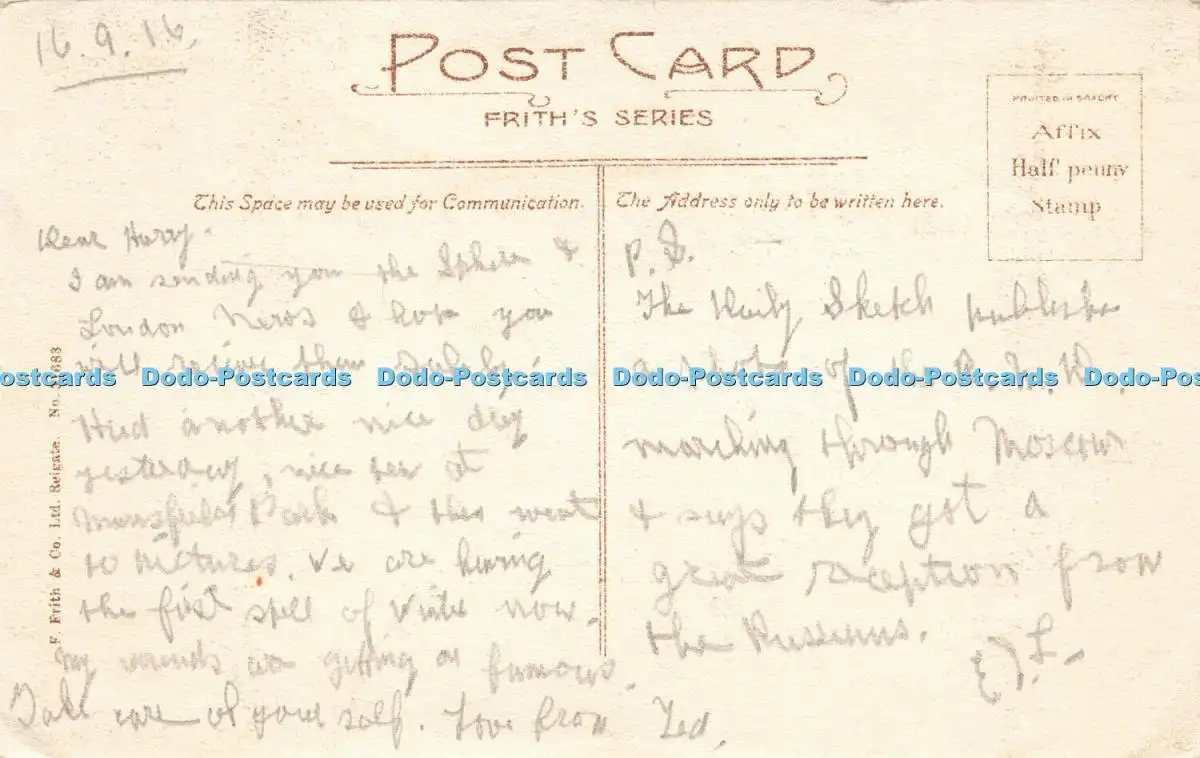 16.9.16.
POST CARD
FRITH'S SERIES
PRINTED IN SAXONY
Affix
Half penny
Stamp
This Space may be used for Communication.
The Address only to be written here.
Dear Harry.
I am sending you the Sphere &
London News & hope you
will them safely.
Had another nice day
yesterday, nice tea at
Mansfield Park & then went
to Pictures. We are having
the first spell of Winter now.
My wounds are getting on famous.
Take care of yourself. Love from Ted.
P.S.
The Daily Sketch publishes
a photo of the
marching through Moscow
& says they got a
great reception from
the Russians.
F. Frith & Co. Ltd. Reigate. No. 683
Dodo-Postcards Dodo-Postcards Dodo-Postcards Dodo-Postcards Dodo-Postcards